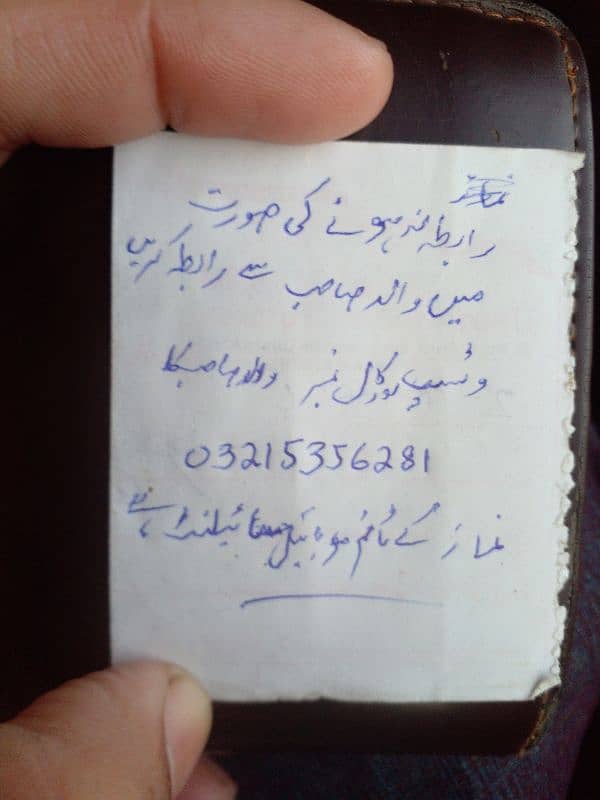 رابطہ نہ ہونے کی صورت
میں والد صاحب سے رابطہ کریں
وٹسپ اور کال نمبر والد صاحب کا
03215356281
نماز کے ٹائم موبائیل سائیلنٹ ہے